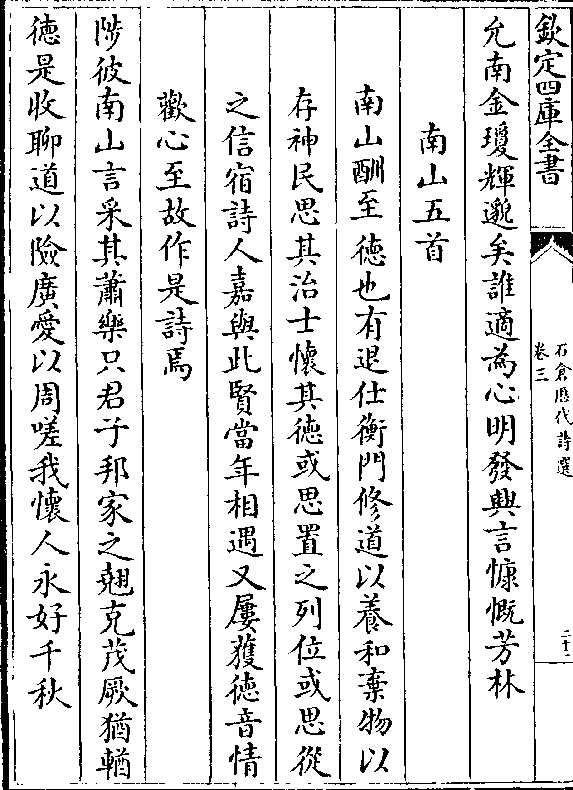 欽定四庫全書
石倉歷代詩選
卷三
二十二
允南金瓊輝邈矣誰適為心明發興言慷慨芳林
南山五首
南山酬至德也有退仕衡門修道以養和棄物以
存神民思其治士懷其德或思置之列位或思從
之信宿詩人嘉與此賢當年相遇又屢獲德音情
歡心至故作是詩焉
陟彼南山言采其蕭樂只君子邦家之翹克茂厥猶輶
德是收聊道以險廣愛以周嗟我懷人永好千秋